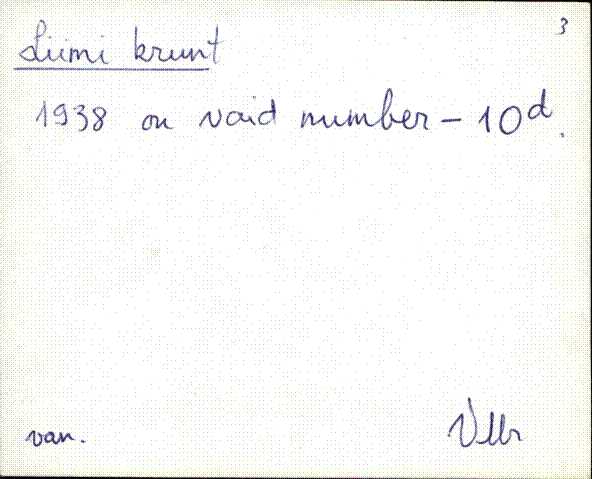 3
Liimi krunt
1938 on vaid number – 10d.
van.